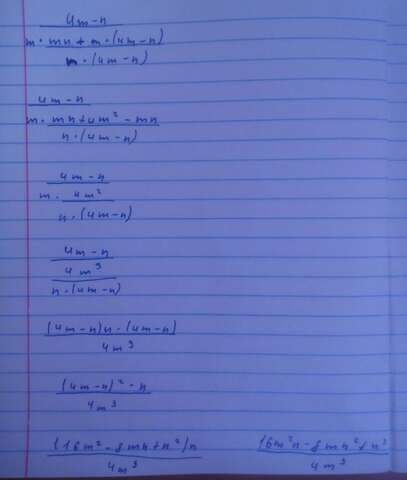 4m-n
m · mn + m · (4m-n)
n · (4m-n)
4m-n
m · mn+4m² - mn
n · (4m-n)
4m-n
m · 4m²
n · (4m-n)
4m-n
4m³
n · (4m-n)
(4m-n)n · (4m-n)
4m³
(4m-n)² · n
4m³
(16m² - 8mn + n²)n
4m³
16m²n - 8mn² + n³
4m³